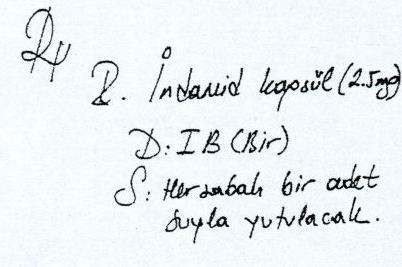 R. İndamid kapsül (2.5mg)
D: I B (Bir)
S: Her sabah bir adet
suyla yutulacak.